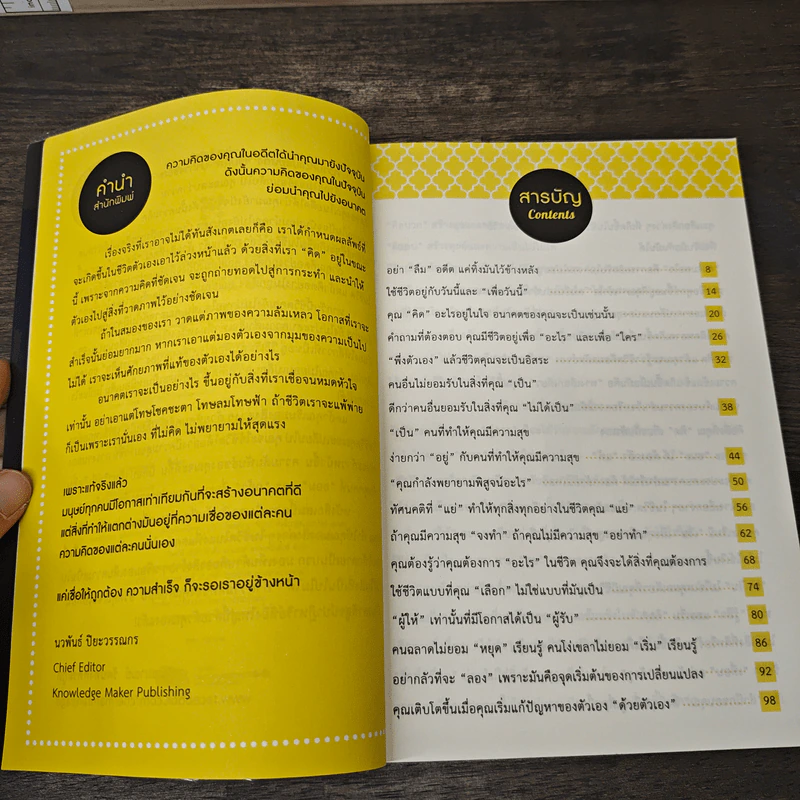 คำนำ
สำนักพิมพ์
ความคิดของคุณในอดีตได้นำคุณมายังปัจจุบัน
ดังนั้นความคิดของคุณในปัจจุบัน
ย่อมนำคุณไปยังอนาคต
เรื่องจริงที่เราอาจไม่ได้ทันสังเกตเลยก็คือ เราได้กำหนดผลลัพธ์ที่
จะเกิดขึ้นในชีวิตตัวเองเอาไว้ล่วงหน้าแล้ว ด้วยสิ่งที่เรา “คิด” อยู่ในขณะ
นี้ เพราะจากความคิดที่ชัดเจน จะถูกถ่ายทอดไปสู่การกระทำ และนำให้
ตัวเองไปสู่สิ่งที่วาดภาพไว้อย่างชัดเจน
ถ้าในสมองของเรา วาดแต่ภาพของความล้มเหลว โอกาสที่เราจะ
สำเร็จนั้นย่อมยากมาก หากเราเอาแต่มองตัวเองจากมุมของความเป็นไป
ไม่ได้ เราจะเห็นศักยภาพที่แท้ของตัวเองได้อย่างไร
อนาคตเราจะเป็นอย่างไร ขึ้นอยู่กับสิ่งที่เราเชื่อจนหมดหัวใจ
เท่านั้น อย่าเอาแต่โทษโชคชะตา โทษลมโทษฟ้า ถ้าชีวิตเราจะแพ้พ่าย
ก็เป็นเพราะเรานั่นเอง ที่ไม่คิด ไม่พยายามให้สุดแรง
เพราะแท้จริงแล้ว
มนุษย์ทุกคนมีโอกาสเท่าเทียมกันที่จะสร้างอนาคตที่ดี
แต่สิ่งที่ทำให้แตกต่างมันอยู่ที่ความเชื่อของแต่ละคน
ความคิดของแต่ละคนนั่นเอง
แค่เชื่อให้ถูกต้อง ความสำเร็จ ก็จะรอเราอยู่ข้างหน้า
นวพันธ์ ปิยะวรรณกร
Chief Editor
Knowledge Maker Publishing
สารบัญ
Contents
อย่า “ลืม” อดีต แค่ทิ้งมันไว้ข้างหลัง 8
ใช้ชีวิตอยู่กับวันนี้และ “เพื่อวันนี้” 14
คุณ “คิด” อะไรอยู่ในใจ อนาคตของคุณจะเป็นเช่นนั้น 20
คำถามที่ต้องตอบ คุณมีชีวิตอยู่เพื่อ “อะไร” และเพื่อ “ใคร” 26
“พึ่งตัวเอง” แล้วชีวิตคุณจะเป็นอิสระ 32
คนอื่นไม่ยอมรับในสิ่งที่คุณ “เป็น”
ดีกว่าคนอื่นยอมรับในสิ่งที่คุณ “ไม่ได้เป็น” 38
“เป็น” คนที่ทำให้คุณมีความสุข
ง่ายกว่า “อยู่” กับคนที่ทำให้คุณมีความสุข 44
“คุณกำลังพยายามพิสูจน์อะไร” 50
ทัศนคติที่ “แย่” ทำให้ทุกสิ่งทุกอย่างในชีวิตคุณ “แย่” 56
ถ้าคุณมีความสุข “จงทำ” ถ้าคุณไม่มีความสุข “อย่าทำ” 62
คุณต้องรู้ว่าคุณต้องการ “อะไร” ในชีวิต คุณจึงจะได้สิ่งที่คุณต้องการ 68
ใช้ชีวิตแบบที่คุณ “เลือก” ไม่ใช่แบบที่มันเป็น 74
“ผู้ให้” เท่านั้นที่มีโอกาสได้เป็น “ผู้รับ” 80
คนฉลาดไม่ยอม “หยุด” เรียนรู้ คนโง่เขลาไม่ยอม “เริ่ม” เรียนรู้ 86
อย่ากลัวที่จะ “ลอง” เพราะมันคือจุดเริ่มต้นของการเปลี่ยนแปลง 92
คุณเติบโตขึ้นเมื่อคุณเริ่มแก้ปัญหาของตัวเอง “ด้วยตัวเอง” 98